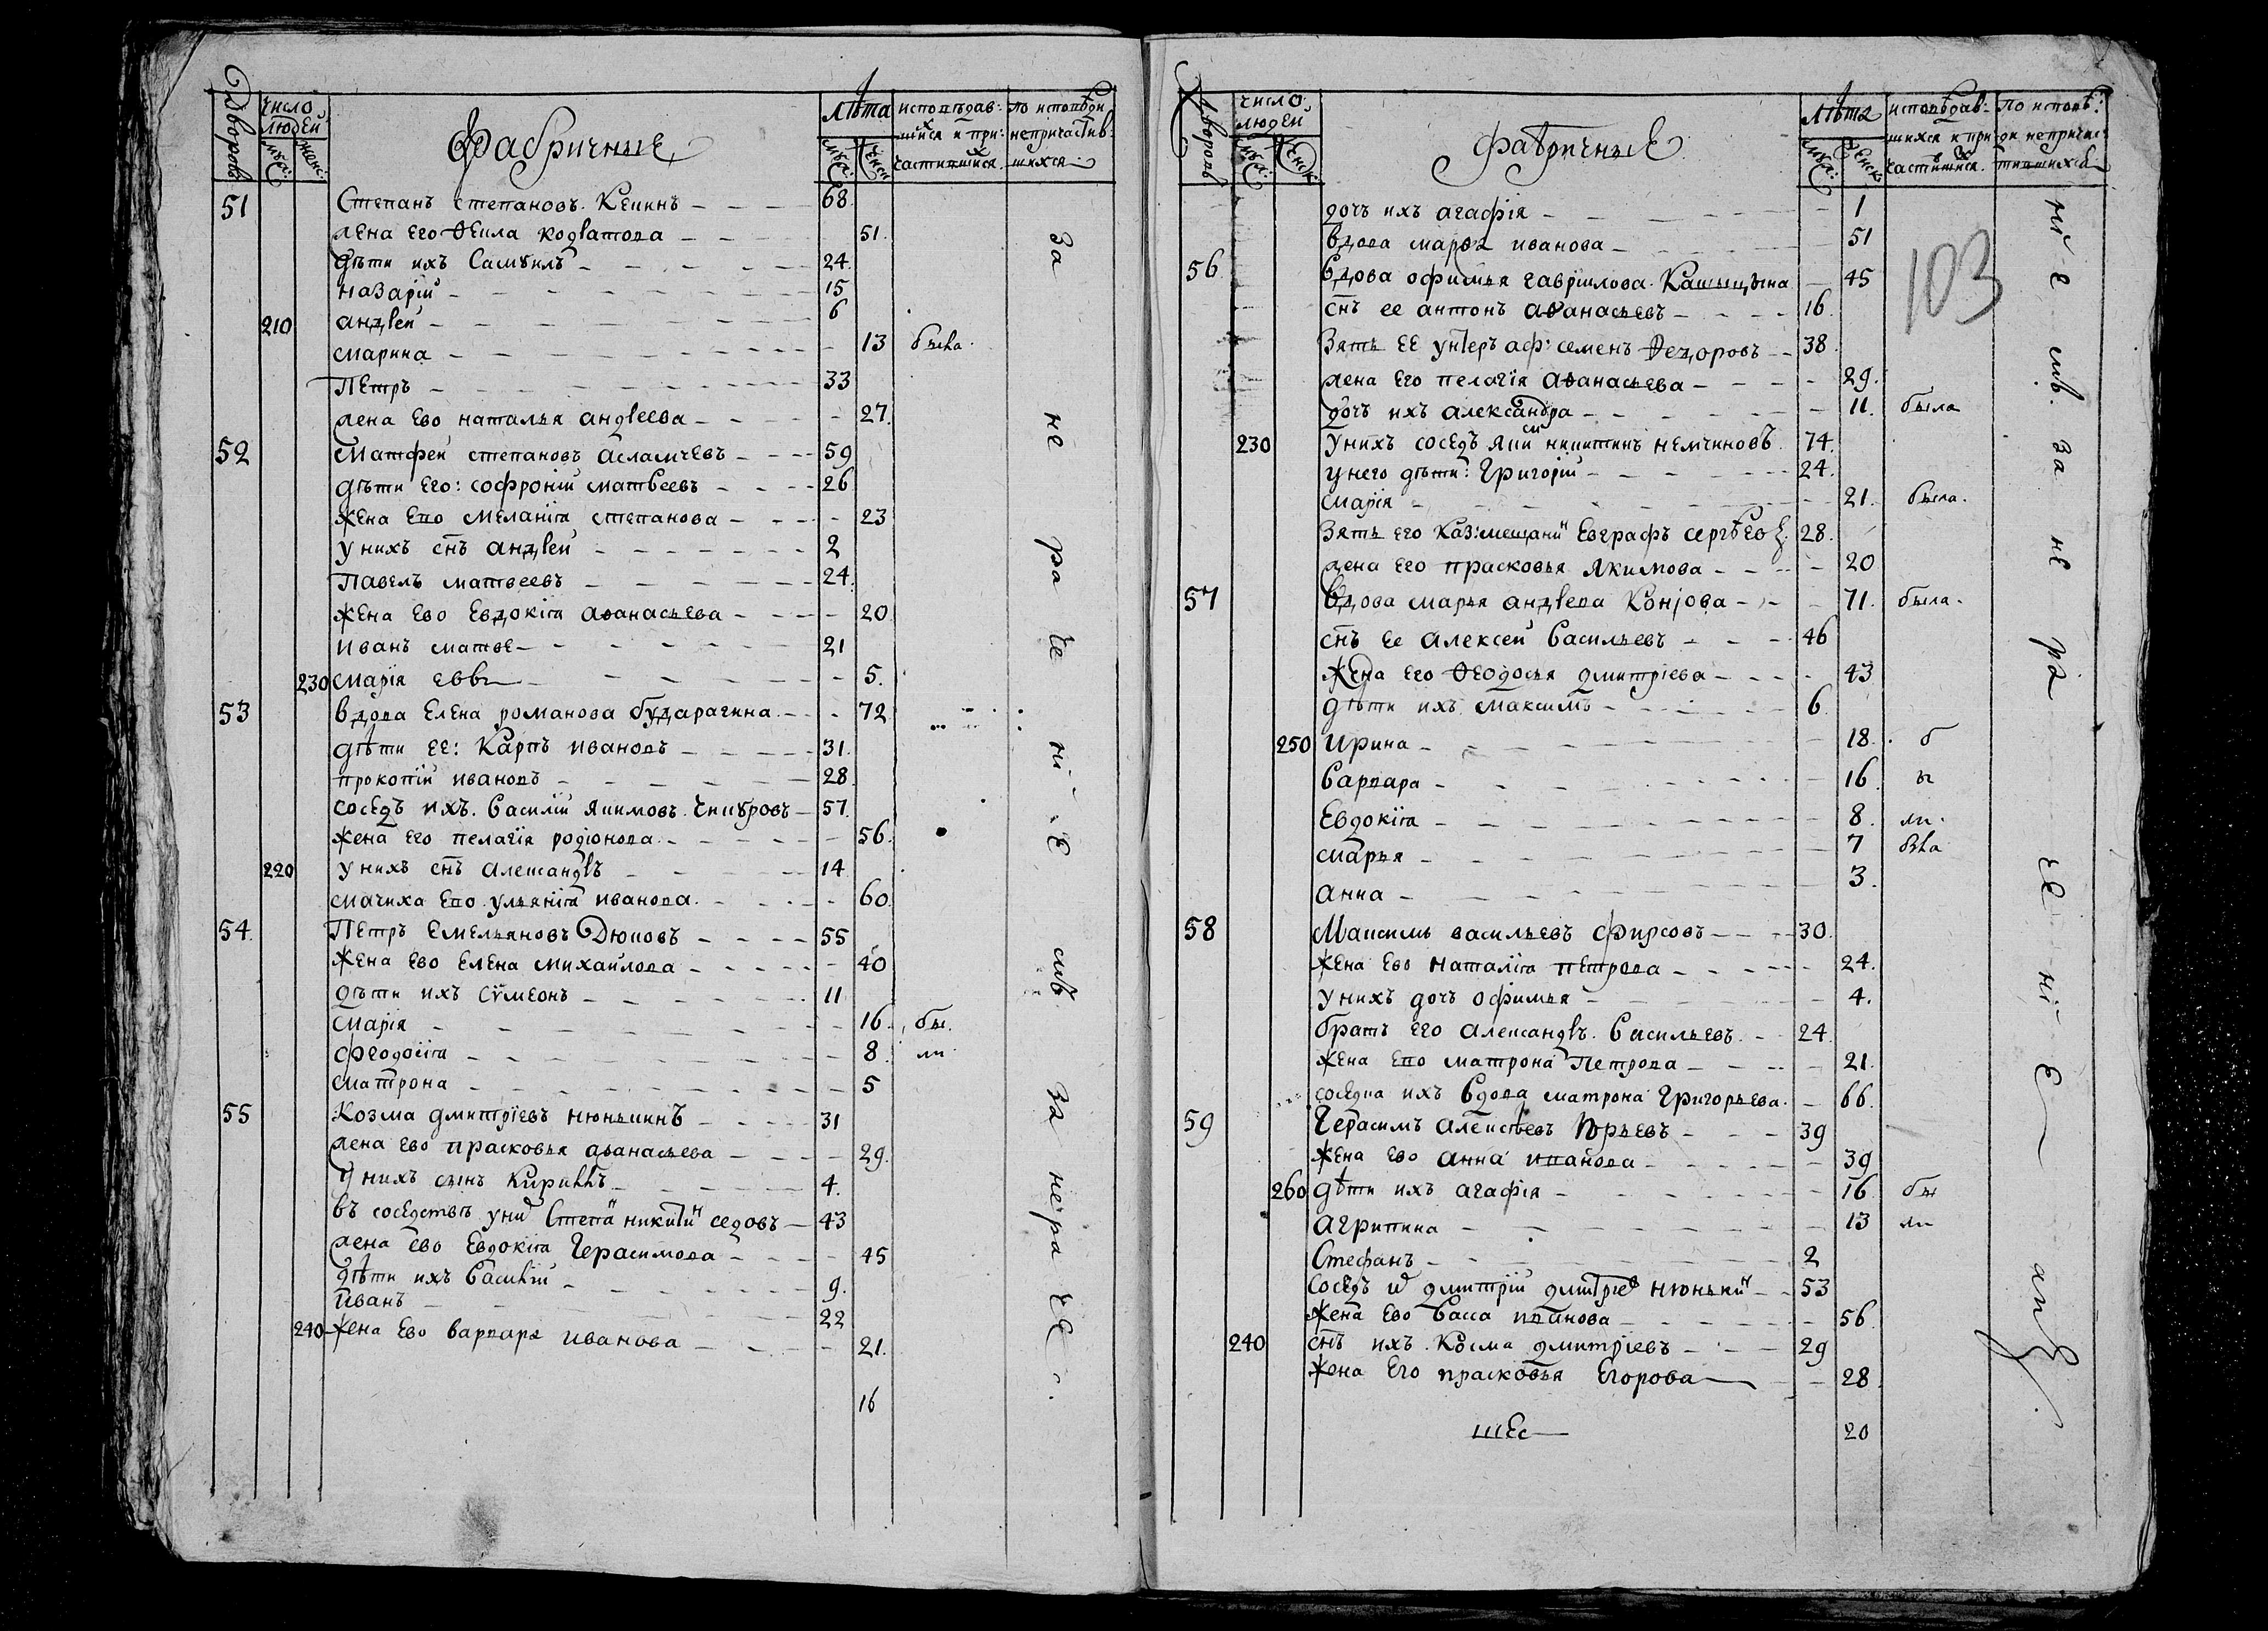 Дворовъ
Число людей
муж: женс:
Фабричные
Лѣта
муж: женск
исповѣдавшихся и причастившихся.
по исповѣди непричастившихся
51 Степанъ степановъ. Кеинъ 68
жена его 51.
дѣти ихъ Самуилъ 24.
назарiй 15
210 андрей 6
марина 13 была.
Петръ 33
жена Ево наталья андреева 27.
52 Матфей степановъ асламчевъ 59
дѣти Его: софронiй матвеевъ 26
жена Ево меланiя степанова 23
у нихъ сн҃ъ андрей 2
Павелъ матвеевъ 24.
жена Ево Евдокiя аѳанасьева 20
иванъ матве 21
230 марiя евв 5.
53 вдова Елена романова бударагина 72
дѣти ее: Карпъ ивановъ 31.
прокопiй ивановъ 28
соседъ ихъ. Василiй якимовъ. Чикуровъ 57.
жена Его пелагiя родiонова 56.
220 у нихъ сн҃ъ александръ 14
мачиха Ево ульянiя иванова. 60
54. Петръ Емельяновъ Дюковъ 55
жена Ево Елена михайлова 40
дѣти ихъ сѵмеонъ 11
марiя 16. бы.
феодосiя 8 ли
матрона 5
55 Козма дмитрiевъ нюнькинъ 31
жена Ево прасковья аѳанасьева 29.
у нихъ сынъ Кирилъ 4.
въ соседствѣ у ни Степа никити седовъ 43
жена Ево Евдокiя Герасимова 45
дѣти ихъ Василiй 9.
иванъ 22
240 жена Ево варвара иванова 21.
16
за не ра че нi Е мъ. за нера че
Дворовъ
число людей
муж: женск
фабричныЕ
Лѣта
муж: женск
исповѣдавшихся и причастившихся.
по исповѣди непричастившихся
103
дочь ихъ агафiя 1
вдова марѳа иванова 51
56 вдова офимья гаврiилова. 45
сн҃ъ ее антонъ аѳанасьевъ 16.
зять ЕЕ унтеръ аф: семенъ Ѳедоровъ 38.
жена Его пелагiя аѳанасьева 29.
дочь ихъ александра 11. была
230 У нихъ соседъ яким никитинъ немчиновъ 74.
у него дѣти: Григорiй 24.
марiя 21. была.
зять его Каз: мещани Евграфъ сергѣев 28.
жена Его прасковья якимова 20
57 вдова марья андреева 71. была.
сн҃ъ ее алексей васильевъ 46
жена его Ѳеодосья дмитрiева 43
дѣти ихъ максимъ 6
250 ирина 18. б
варвара 16 ы
Евдокiя 8. ли.
марья 7 была
анна 3.
58 Максимъ васильевъ фирсовъ 30.
жена Ево наталiя петрова 24.
у нихъ дочь офимья 4.
братъ его александръ. васильевъ. 24
жена Ево матрона Петрова 21.
соседка ихъ вдова матрона Григорьева. 66.
59 Герасимъ алексѣевъ Юрьевъ 39
жена Ево анна иванова 39
260 дѣти ихъ агафiя 16 бы
агрипина 13 ли
Стефанъ 2
соседъ и дмитрiй дмитрiев нюньки 53
жена Ево васса иванова 56.
240 сн҃ъ ихъ. Козма дмитрiевъ 29
жена Его прасковья Егорова 28
шЕс 20
нi е мъ. за не ра че нi Е